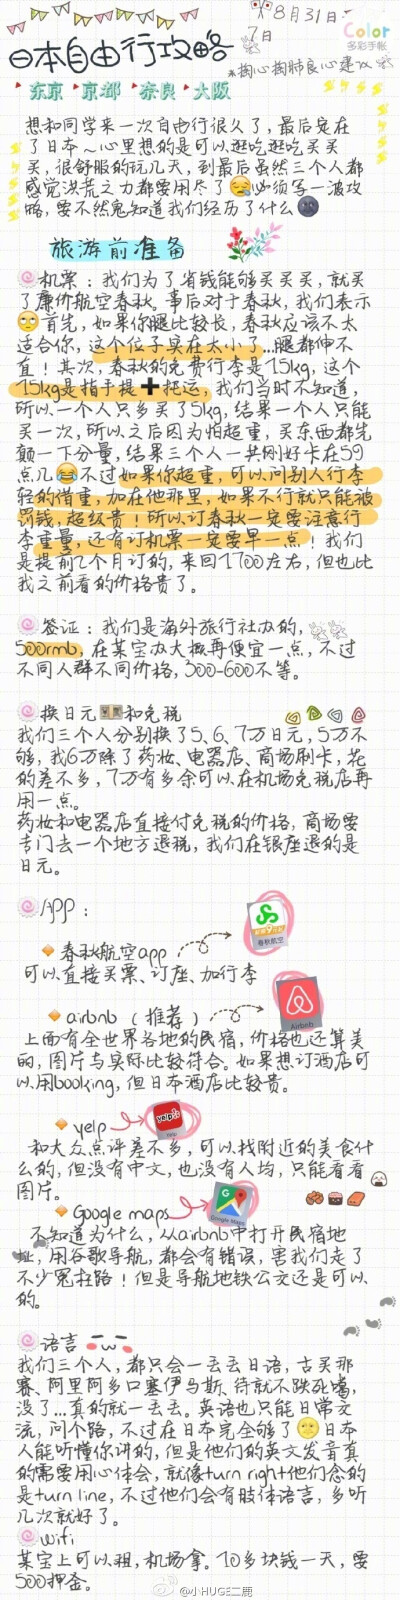 8月31日
7日
Color
多彩手帐
日本自由行攻略
*掏心掏肺良心建议
东京 京都 奈良 大阪
想和同学来一次自由行很久了，最后定在
了日本～心里想的是可以逛吃逛吃买买
买，很舒服的玩几天，到最后虽然三个人都
感觉洪荒之力都要用尽了😪必须写一波攻
略，要不然鬼知道我们经历了什么🌚
旅游前准备
🍥机票：我们为了省钱能够买买买，就买
了廉价航空春秋。事后对于春秋，我们表示
🙄首先，如果你腿比较长，春秋应该不太
适合你，这个位子实在太小了…腿都伸不
直！其次，春秋的免费行李是15kg，这个
15kg是指手提➕托运，我们当时不知道，
所以一个人只多买了5kg，结果一个人只能
买一次，所以之后因为怕超重，买东西都先
颠一下分量，结果三个人一共刚好卡在59
点几😂不过如果你超重，可以问别人行李
轻的借重，加在他那里，如果不行就只能被
罚钱，超级贵！所以订春秋一定要注意行
李重量，还有订机票一定要早一点！我们
是提前2个月订的，来回1700左右，但也比
我之前看的价格贵了。
🍥签证：我们是海外旅行社办的，
500rmb，在某宝办大概再便宜一点，不过
不同人群不同价格，300-600不等。
🍥换日元💴和免税
我们三个人分别换了5、6、7万日元，5万不
够，我6万除了药妆、电器店、商场刷卡，花
的差不多，7万有多余可以在机场免税店再
用一点。
药妆和电器店直接付免税的价格，商场要
专门去一个地方退税，我们在银座退的是
日元。
🍥APP：
🔸春秋航空app
春秋航空
可以直接买票、订座、加行李
🔸airbnb（推荐）
Airbnb
上面有全世界各地的民宿，价格也还算美
丽，图片与实际比较符合。如果想订酒店可
以用booking，但日本酒店比较贵。
🔸yelp
yelp
和大众点评差不多，可以找附近的美食什
么的，但没有中文，也没有人均，只能看看
图片。
🔸Google maps
Google Maps
不知道为什么，从airbnb中打开民宿地
址，用谷歌导航，都会有错误，害我们走了
不少冤枉路！但是导航地铁公交还是可以
的。
🍥语言
我们三个人，都只会一丢丢日语，古买那
赛、阿里阿多口塞伊马斯、待就不跌死嘎，
没了…真的就一丢丢。英语也只能日常交
流，问个路，不过在日本完全够了🌝日本
人能听懂你讲的，但是他们的英文发音真
的需要用心体会，就像turn right他们念的
是turn line，不过他们会有肢体语言，多听
几次就好了。
🍥wifi
某宝上可以租，机场拿。10多块钱一天，要
500押金。
@小HUGE二鹿